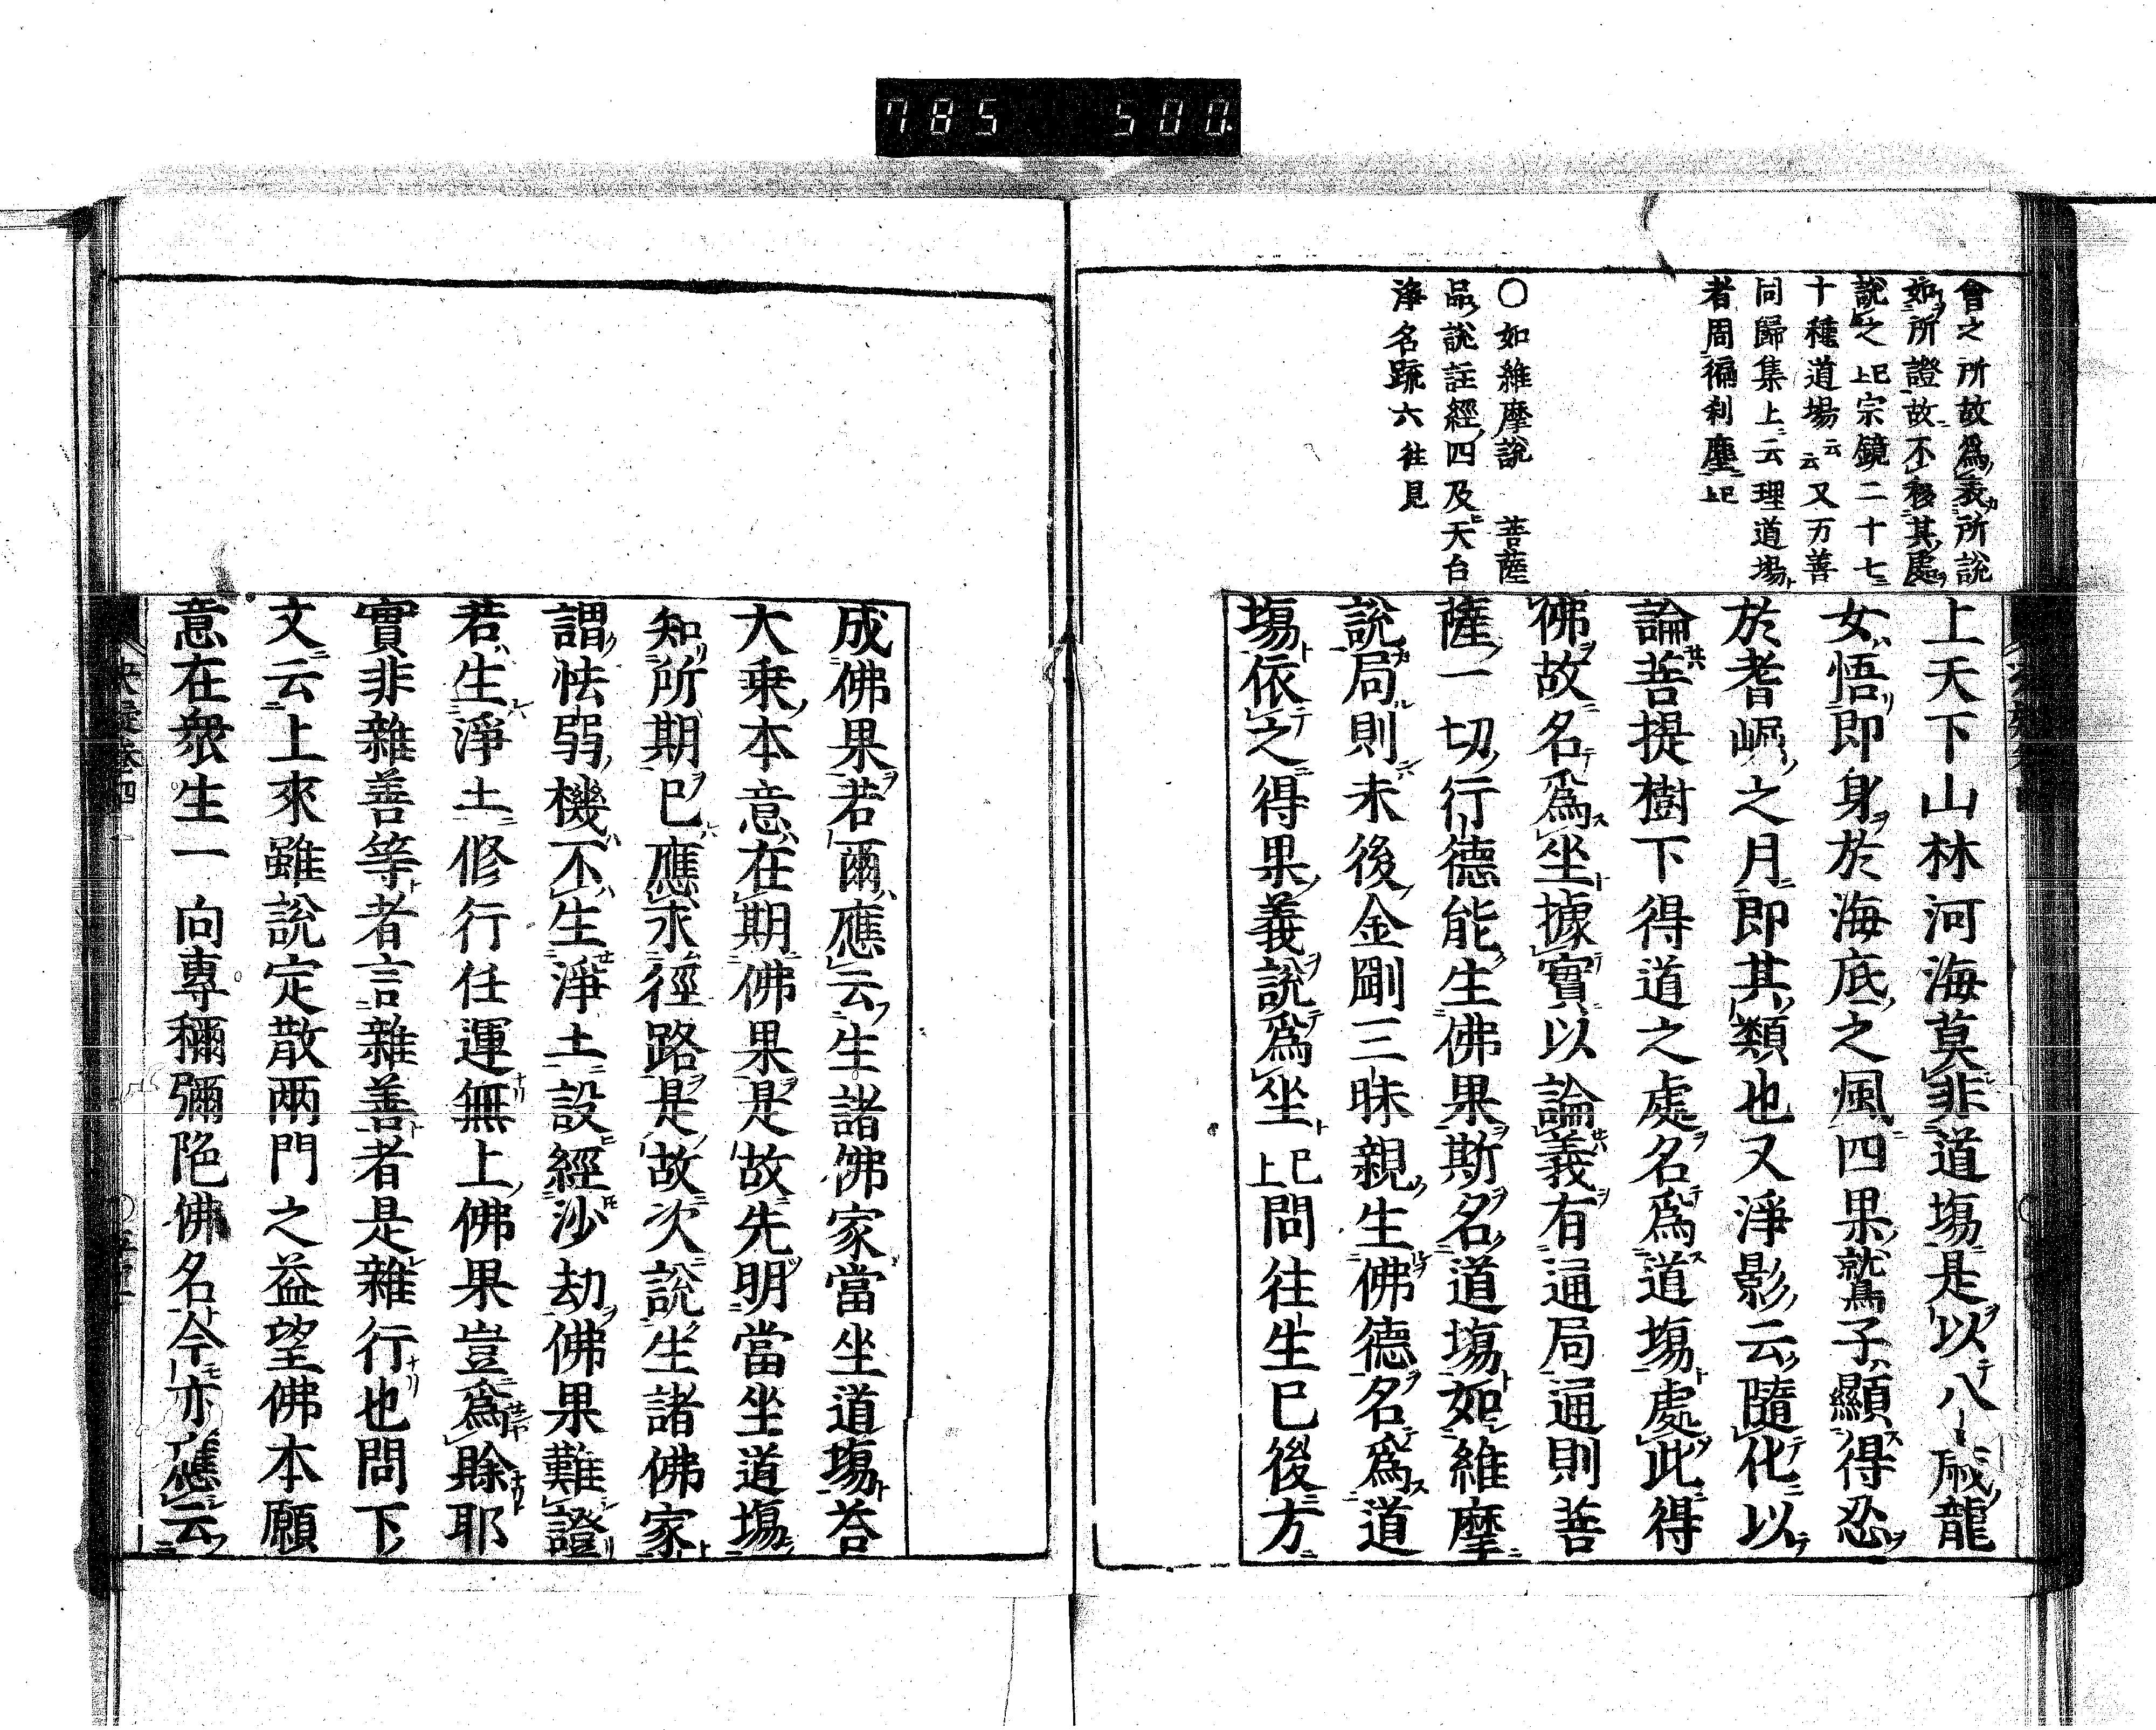 785 500
會之所故為表所説
如所證故不移其處
説之已上宗鏡二十七
十種道場云云又万善
同歸集上云理道場
者周徧刹塵已上
○如維摩説 菩薩
品説註經四及天台
淨名䟽六往見
上天下山林河海莫非道塲是以八歳龍
女悟即身於海底之風四果鷲子顯得忍
於耆崛之月即其類也又淨影云隨化以
論菩提樹下得道之處名爲道塲處此得
佛故名爲坐據實以論義有通局通則菩
薩一切行德能生佛果斯名道塲如維摩
説局則末後金剛三昧親生佛德名爲道
塲依之得果義説爲坐已上問往生已後方
成佛果若爾應云生諸佛家當坐道塲荅
大乗本意在期佛果是故先明當坐道塲
知所期已應求徑路是故次説生諸佛家
謂怯弱機不生淨土設經沙劫佛果難證
若生淨土修行任運無上佛果豈爲賒耶
實非雜善等者言雜善者是雜行也問下
文云上來雖説定散兩門之益望佛本願
意在衆生一向專稱彌陀佛名今亦應云